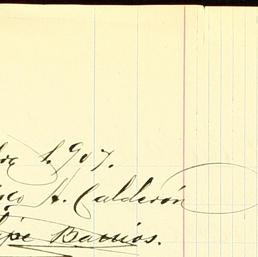 bre 1.907.
isco A. Calderón
lipe Barrios.